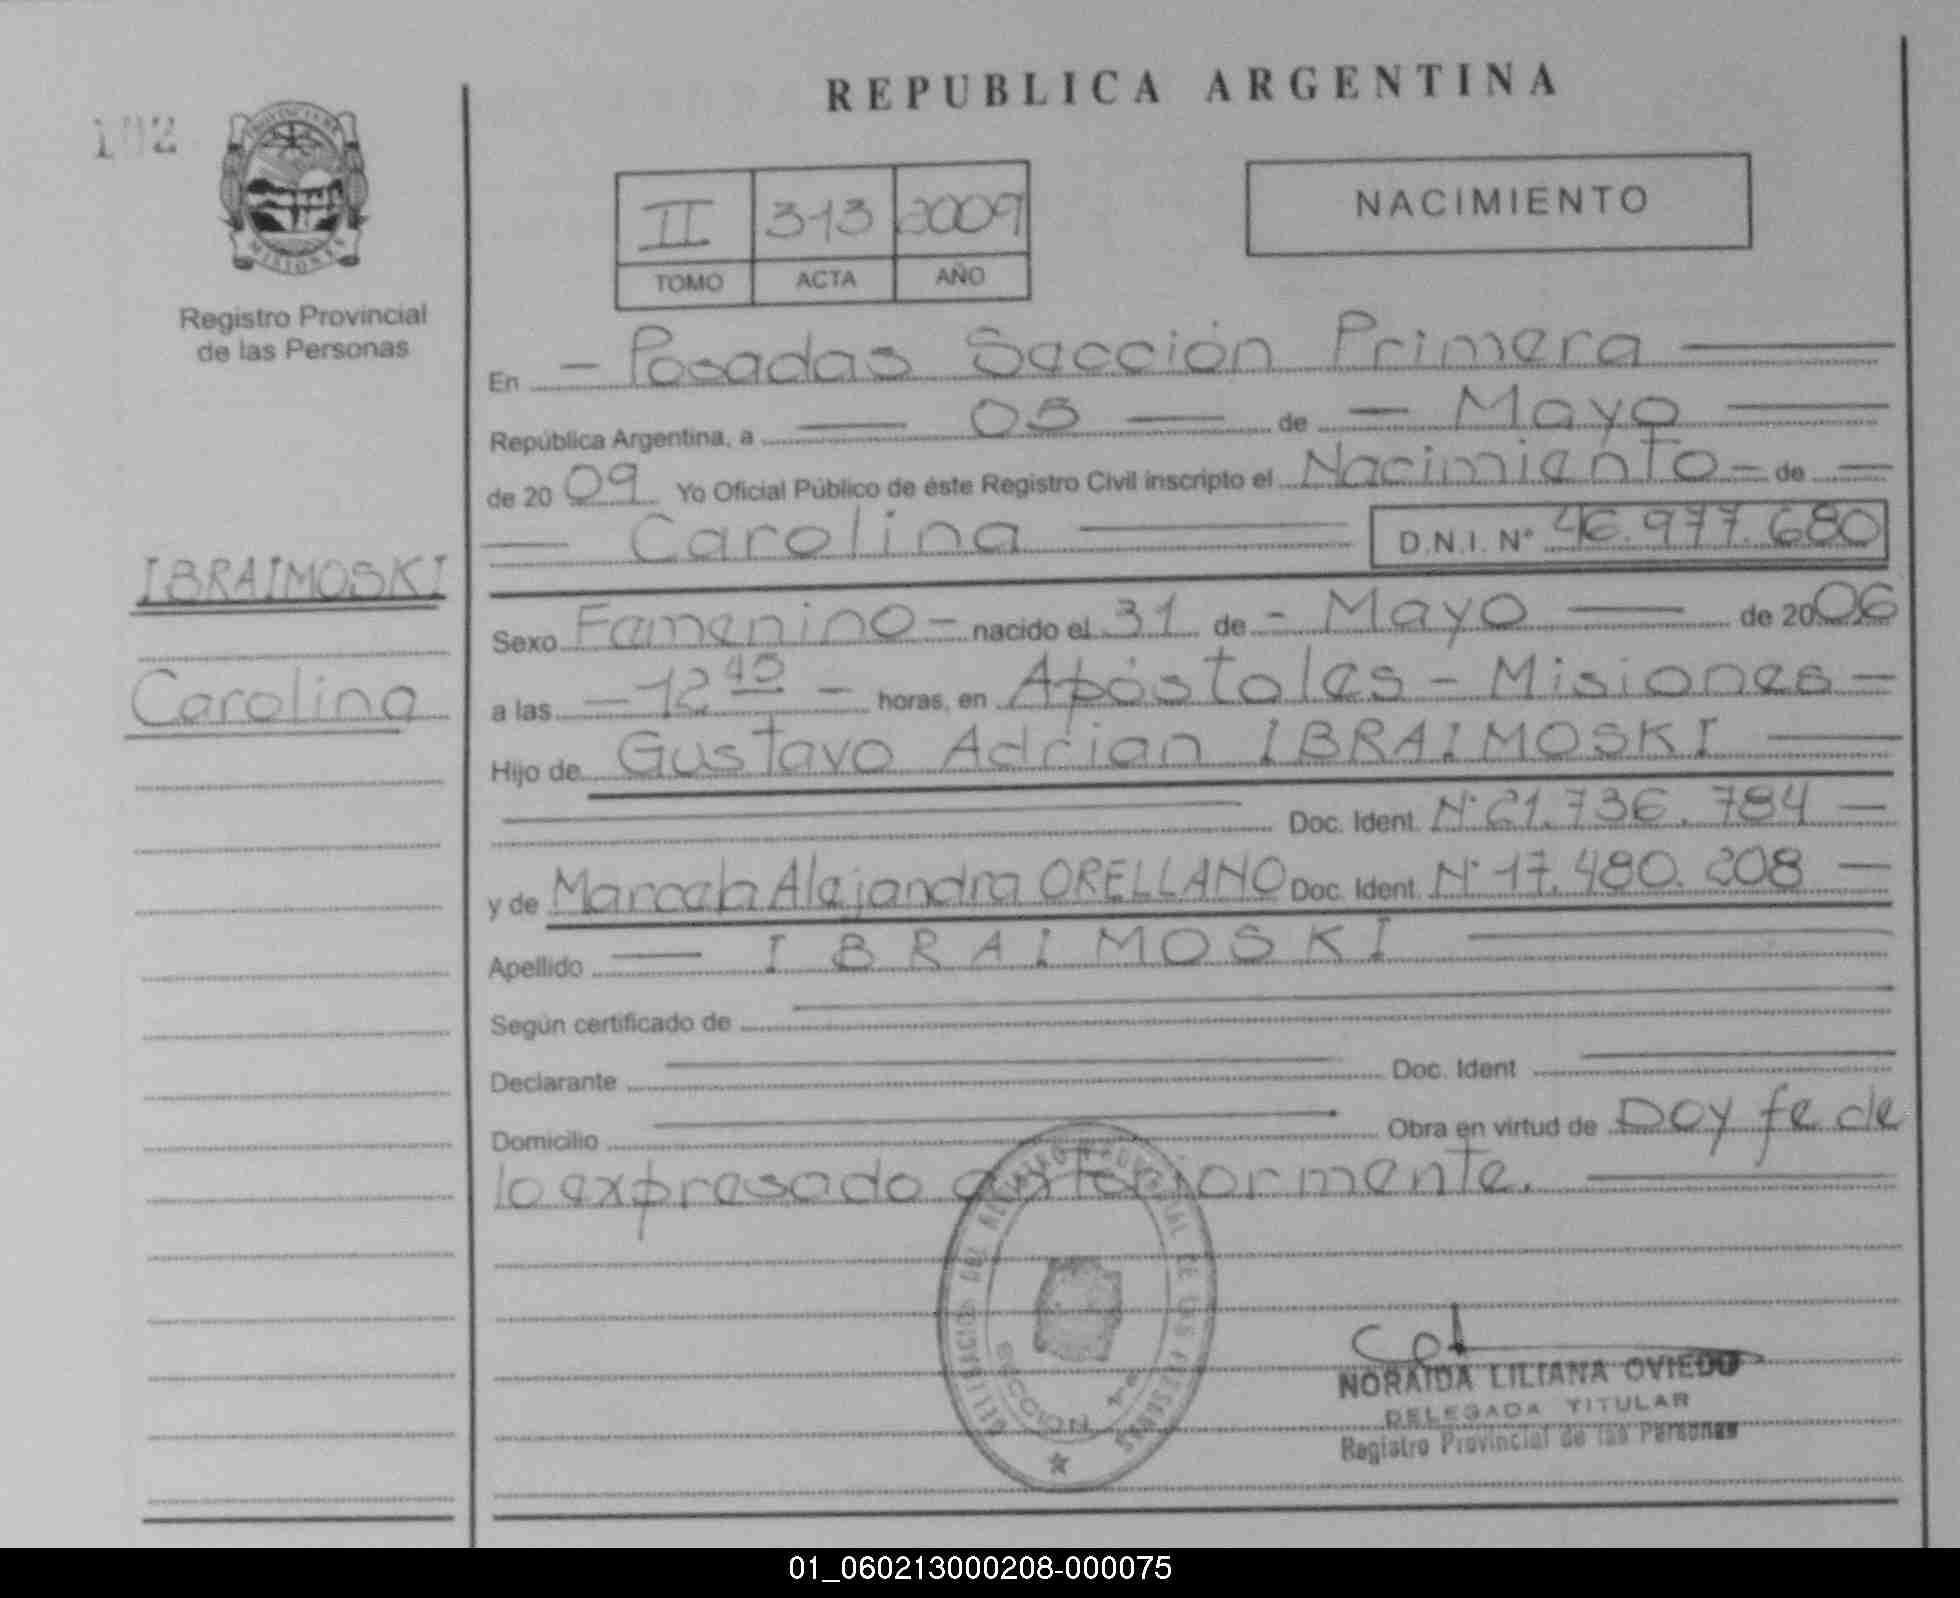 REPUBLICA ARGENTINA
PROVINCIA DE
MISIONES
Registro Provincial
de las Personas
II 313 2009
TOMO ACTA AÑO
NACIMIENTO
En - Posadas Sección Primera
República Argentina, a 05 de - Mayo
de 20 09 Yo Oficial Público de éste Registro Civil inscripto el Nacimiento - de
Carolina D.N.I. N° 46.977.680
IBRAIMOSKI
Carolina
Sexo Femenino - nacido el 31 de - Mayo de 2006
a las - 12 45 - horas, en Apóstoles - Misiones -
Hijo de Gustavo Adrian IBRAIMOSKI
Doc. Ident. N° 21.736.784
y de Marcela Alejandra ORELLANO Doc. Ident. N° 17.480.208
Apellido IBRAIMOSKI
Según certificado de
Declarante Doc. Ident
Domicilio Obra en virtud de Doy fe de
lo expresado anteriormente.
NORAIDA LILIANA OVIEDO
DELEGADA TITULAR
Registro Provincial de las Personas
01_060213000208-000075